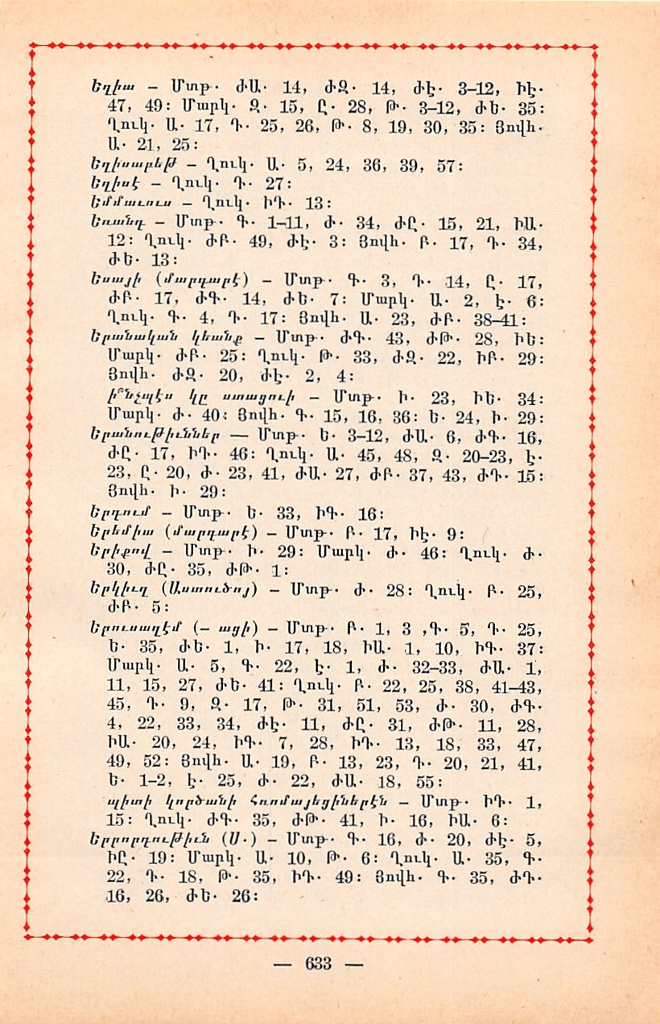 Եղիա – Մտթ· ԺԱ· 14, ԺԶ· 14, ԺԷ· 3–12, ԻԷ·
47, 49: Մարկ· Զ· 15, Ը· 28, Թ· 3–12, ԺԵ· 35:
Ղուկ· Ա· 17, Դ· 25, 26, Թ· 8, 19, 30, 35: Յովհ·
Ա· 21, 25:
Եղիսարեթ – Ղուկ· Ա· 5, 24, 36, 39, 57:
Եղիսէ – Ղուկ· Դ· 27:
Եմմաւուս – Ղուկ· ԻԴ· 13:
Եռանդ – Մտթ· Գ· 1–11, Ժ· 34, ԺԸ· 15, 21, ԻԱ·
12: Ղուկ· ԺԲ· 49, ԺԷ· 3: Յովհ· Բ· 17, Դ· 34,
ԺԵ· 13:
Եսայի (մարգարէ) – Մտթ· Գ· 3, Դ· 14, Ը· 17,
ԺԲ· 17, ԺԳ· 14, ԺԵ· 7: Մարկ· Ա· 2, Է· 6:
Ղուկ· Գ· 4, Դ· 17: Յովհ· Ա· 23, ԺԲ· 38–41:
Երանական կեանք – Մտթ· ԺԳ· 43, ԺԹ· 28, ԻԵ:
Մարկ· ԺԲ· 25: Ղուկ· Թ· 33, ԺԶ· 22, ԻԲ· 29:
Յովհ· ԺԶ· 20, ԺԷ· 2, 4:
ի՞նչպէս կը ստացուի – Մտթ· Ի· 23, ԻԵ· 34:
Մարկ· Ժ· 40: Յովհ· Գ· 15, 16, 36: Ե· 24, Ի· 29:
Երանութիւններ — Մտթ· Ե· 3–12, ԺԱ· 6, ԺԳ· 16,
ԺԸ· 17, ԻԴ· 46: Ղուկ· Ա· 45, 48, Զ· 20–23, Է·
23, Ը· 20, Ժ· 23, 41, ԺԱ· 27, ԺԲ· 37, 43, ԺԴ· 15:
Յովհ· Ի· 29:
Երդում – Մտթ· Ե· 33, ԻԳ· 16:
Երեմիա (մարգարէ) – Մտթ· Բ· 17, ԻԷ· 9:
Երիքով – Մտթ· Ի· 29: Մարկ· Ժ· 46: Ղուկ· Ժ·
30, ԺԸ· 35, ԺԹ· 1:
Երկիւղ (Աստուծոյ) – Մտթ· Ժ· 28: Ղուկ· Բ· 25,
ԺԲ· 5:
Երուսաղէմ (– ացի) – Մտթ· Բ· 1, 3 ,Գ· 5, Դ· 25,
Ե· 35, ԺԵ· 1, Ի· 17, 18, ԻԱ· 1, 10, ԻԳ· 37:
Մարկ· Ա· 5, Գ· 22, Է· 1, Ժ· 32–33, ԺԱ· 1,
11, 15, 27, ԺԵ· 41: Ղուկ· Բ· 22, 25, 38, 41–43,
45, Դ· 9, Զ· 17, Թ· 31, 51, 53, Ժ· 30, ԺԳ·
4, 22, 33, 34, ԺԷ· 11, ԺԸ· 31, ԺԹ· 11, 28,
ԻԱ· 20, 24, ԻԳ· 7, 28, ԻԴ· 13, 18, 33, 47,
49, 52: Յովհ· Ա· 19, Բ· 13, 23, Դ· 20, 21, 41,
Ե· 1–2, Է· 25, Ժ· 22, ԺԱ· 18, 55:
պիտի կործանի Հռոմայեցիներէն – Մտթ· ԻԴ· 1,
15: Ղուկ· ԺԳ· 35, ԺԹ· 41, Ի· 16, ԻԱ· 6:
Երրորդութիւն (Ս·) – Մտթ· Գ· 16, Ժ· 20, ԺԷ· 5,
ԻԸ· 19: Մարկ· Ա· 10, Թ· 6: Ղուկ· Ա· 35, Գ·
22, Դ· 18, Թ· 35, ԻԴ· 49: Յովհ· Գ· 35, ԺԴ·
16, 26, ԺԵ· 26:
— 633 —